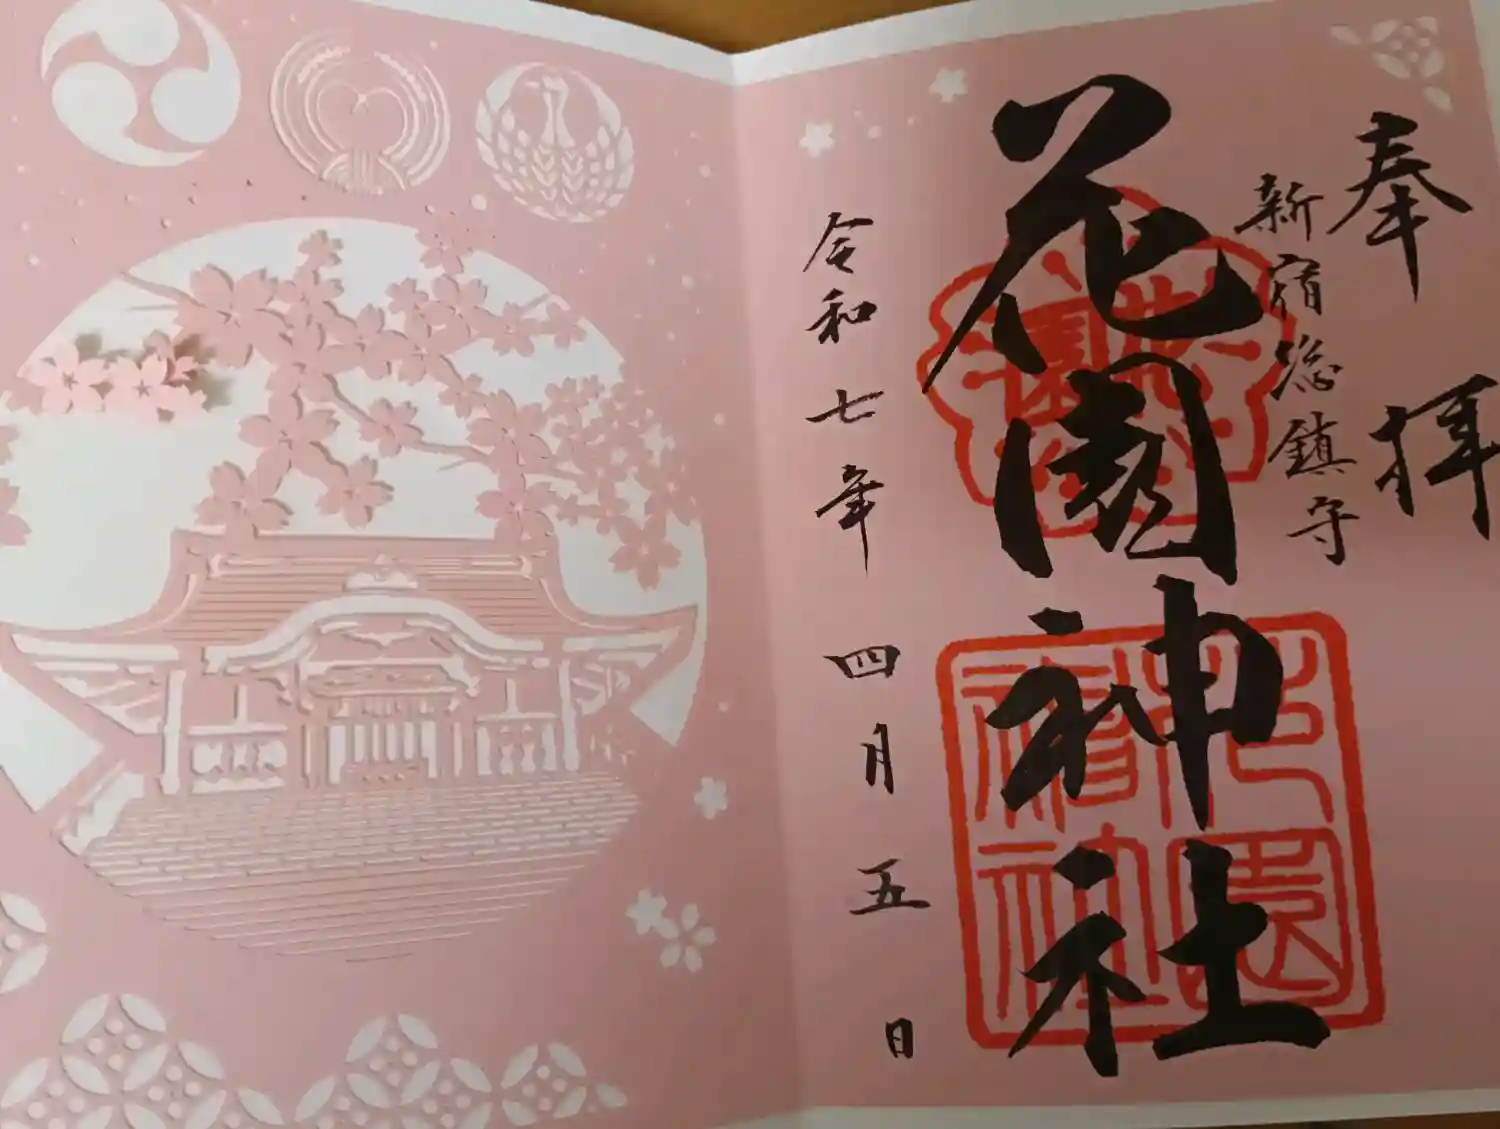 奉拝
新宿総鎮守
花園神社
令和七年四月五日
花園
神社